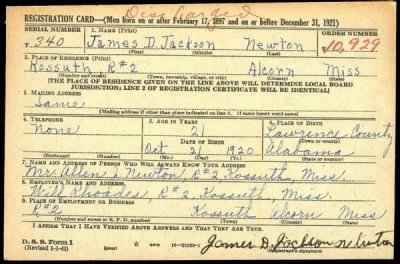 Discharged
REGISTRATION CARD—(Men born on or after February 17, 1897 and on or before December 31, 1921)
SERIAL NUMBER 1. NAME (Print) ORDER NUMBER
T 340 James D. Jackson Newton 10,929
(First) (Middle) (Last)
2. PLACE OF RESIDENCE (Print)
Kossuth R#2 Alcorn Miss
(Number and street) (Town, township, village, or city) (County) (State)
[THE PLACE OF RESIDENCE GIVEN ON THE LINE ABOVE WILL DETERMINE LOCAL BOARD
JURISDICTION; LINE 2 OF REGISTRATION CERTIFICATE WILL BE IDENTICAL]
3. MAILING ADDRESS
Same
[Mailing address if other than place indicated on line 2. If same insert word same]
4. TELEPHONE 5. AGE IN YEARS 6. PLACE OF BIRTH
None 21 Lawrence County
DATE OF BIRTH (Town or county)
Oct 21 1920 Alabama
(Exchange) (Number) (Mo.) (Day) (Yr.) (State or country)
7. NAME AND ADDRESS OF PERSON WHO WILL ALWAYS KNOW YOUR ADDRESS
Mr. Allen J. Newton, R#2, Kossuth, Miss.
8. EMPLOYER'S NAME AND ADDRESS
Will Rhoades, R#2, Kossuth, Miss.
9. PLACE OF EMPLOYMENT OR BUSINESS
R#2 Kossuth Alcorn Miss
(Number and street or R. F. D. number) (Town) (County) (State)
I AFFIRM THAT I HAVE VERIFIED ABOVE ANSWERS AND THAT THEY ARE TRUE.
D. S. S. Form 1
(Revised 1-1-42) James D. Jackson Newton